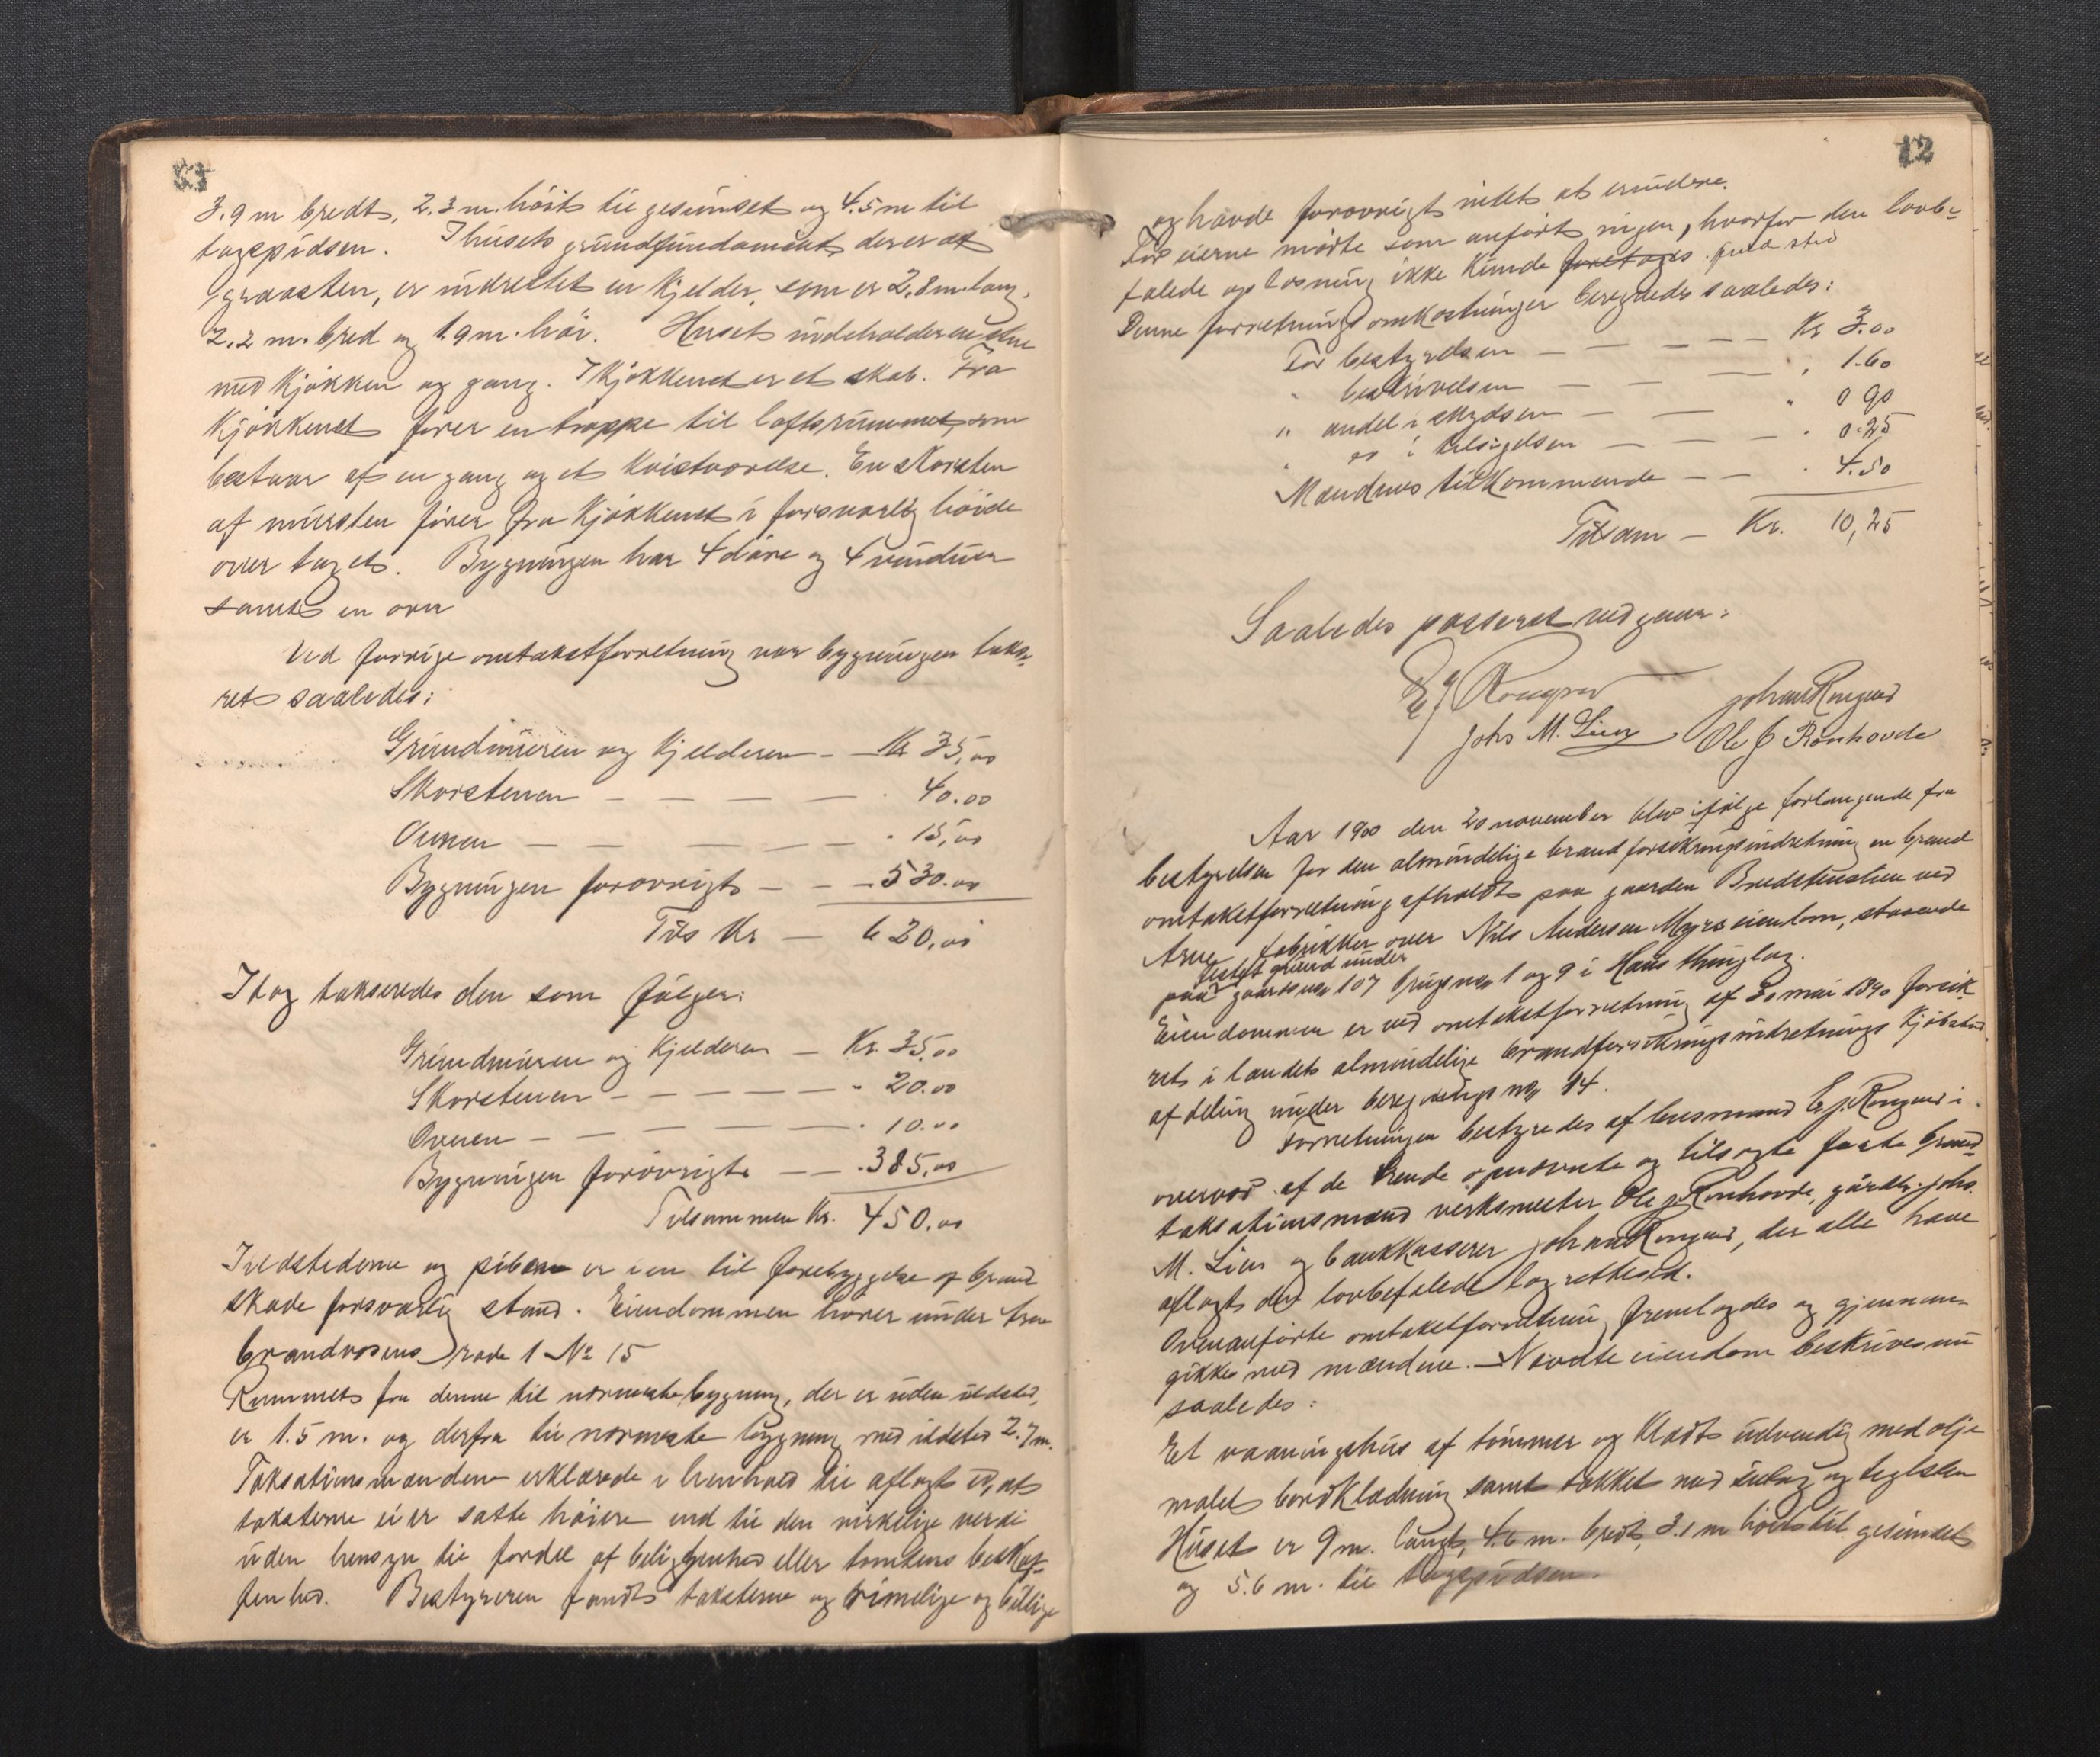 3.9 m bredt, 2.3 m. høit til gesimset og 4.5 m til
tagspidsen. I husets grundfundament der er af
graasten, er indrettet en kjelder, som er 2,8 m. lang,
2.2 m. bred og 1.9 m. høi. Huset indeholder en stue
med kjøkken og gang. I kjøkkenet er et skab. Fra
kjøkkenet fører en trappe til loftsrummet, som
bestaar af en gang og et kvistværelse. En skorsten
af mursten fører fra kjøkkenet i forsvarlig høide
over taget. Bygningen har 4 døre og 4 vinduer
samt en ovn
Ved forrige omtakstforretning var bygningen takse-
ret saaledes:
Grundmuren og kjelderen - Kr 35,00
Skorstenen - - - - 40.00
Ovnen - - - - - 15,00
Bygningen forøvrigt - - - 530.00
Tils Kr - 620,00
I dag takseredes den som følger:
Grundmuren og kjelderen - Kr. 35.00
Skorstenen - - - - - 20.00
Ovnen - - - - - 10.00
Bygningen forøvrigt - - . 385,00
Tilsammen Kr. 450,00
Ildstederne og piben er i en til forebyggelse af brand
skade forsvarlig stand. Eiendommen hører under Arne
brandvæsens rode 1 No 15
Rummet fra denne til nærmeste bygning, der er uden ildsted,
er 1.5 m. og derfra til nærmeste bygning med ildsted 2.7 m.
Taksationsmændene erklærede i henhold til aflagt ed, at
taksterne ei er satte høiere end til den virkelige værdi
uden hensyn til fordel af beliggenhed eller tomtens beskaf-
fenhed. Bestyreren fandt taksterne og rimelige og billige
12
og havde forøvrigt intet at erindre.
For eierne mødte som anført ingen, hvorfor den lovbe-
falede oplæsning ikke kunde foretages. finde sted
Denne forretnings omkostninger beregnedes saaledes:
For bestyrelsen - - - - - Kr 3.00
" beskrivelsen - - - " 1.60
" andel i skydsen - - - " 0 90
" do i tilsigelsen - - - - " 0.25
Mændenes tilkommende - - " 4.50
Tilsam - Kr. 10,25
Saaledes passeret vedgaaes:
E. J. Rongved Johan Rongved
Johs M. Lien Ole J Ronhovde
Aar 1900 den 20 november blev ifølge forlangende fra
bestyrelsen for den almindelige brandforsikringsindretning en brand
omtakstforretning afholdt paa gaarden Bredstuslien ved
Arne fabrikker over Nils Andersen Myrs eiendom, staaende
festet grund under
paa gaards no 107 brugs no 1 og 9 i Haus thinglag.
Eiendommen er ved omtakstforretning af 30 mai 1890 forsik-
ret i landets almindelige brandforsikringsindretnings kjøbstad
afdeling under beregnings no 14.
Forretningen bestyredes af lensmand E. J. Rongved i
overvær af de trende opnævnte og tilsagte faste brand-
taksationsmænd verksmester Ole J. Ronhovde, gårdbr. Johs.
M. Lien og bankkasserer Johan Rongved, der alle have
aflagt den lovbefalede lagrettesed.
Ovenanførte omtakstforretning fremlagdes og gjennem-
gikkes med mændene. - Nævnte eiendom beskrives nu
saaledes:
Et vaaningshus af tømmer og klædt udvendig med olje
malet bordklædning samt tækket med sutag og teglsten
Huset er 9 m. langt, 4.6 m. bredt, 3.1 m høit til gesimset
og 5.6 m. til tagspidsen.